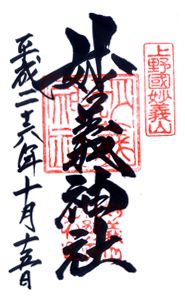 上野國妙義山
妙義神社
平成二十六年十月十五日